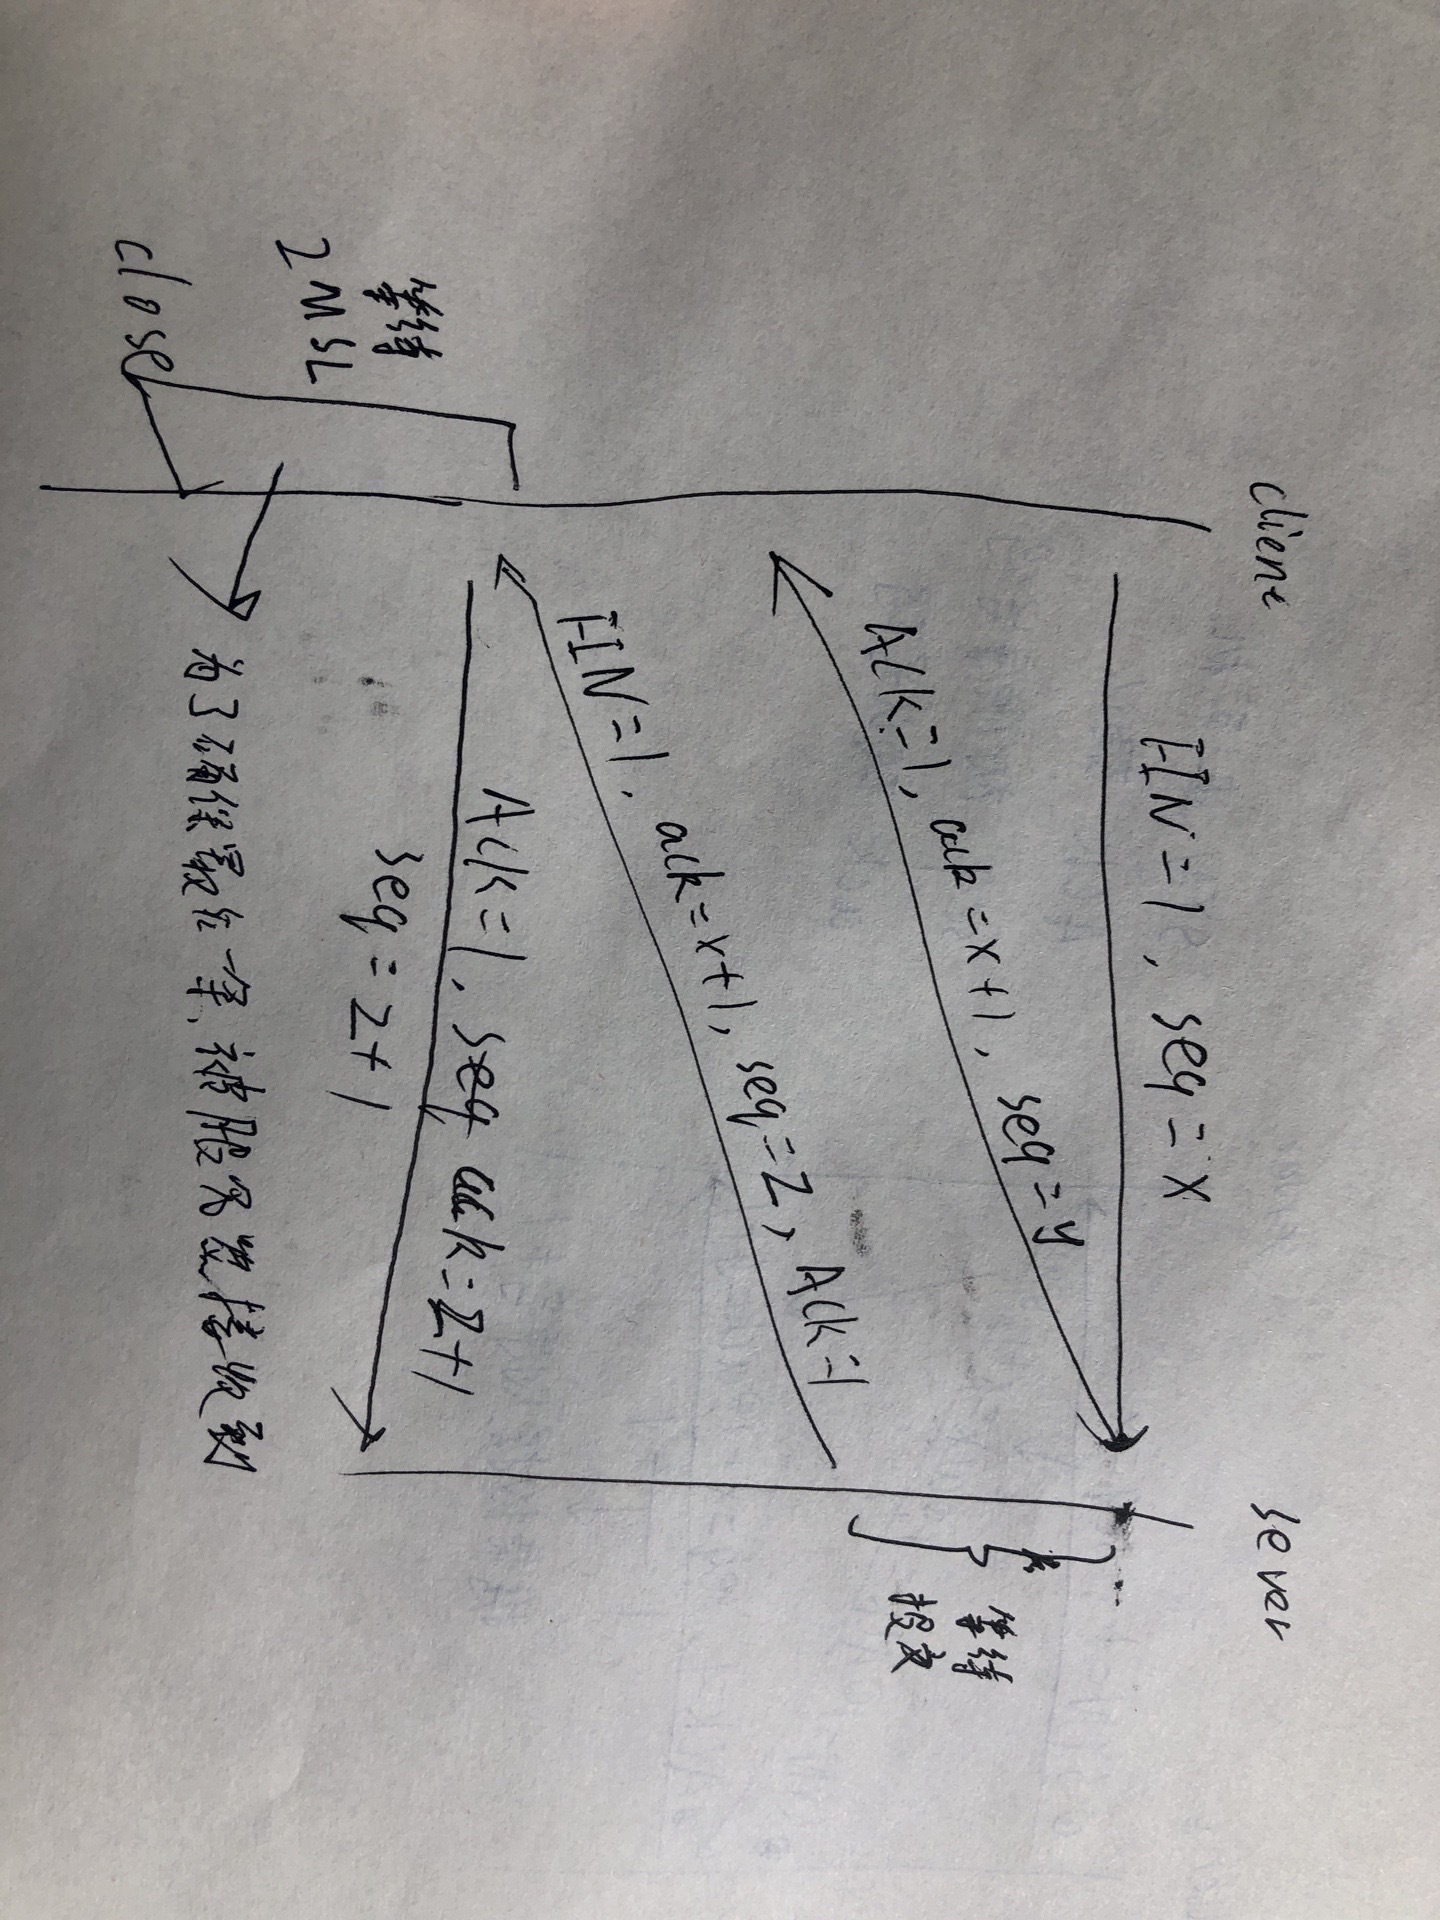 client
sever
FIN=1, seq=x
ACK=1, ack=x+1, seq=y
等待
报文
FIN=1, ack=x+1, seq=z, ACK=1
ACK=1, seq ack=z+1
seq=z+1
等待
2MSL
为了确保最后一条,被服务器接收到
close